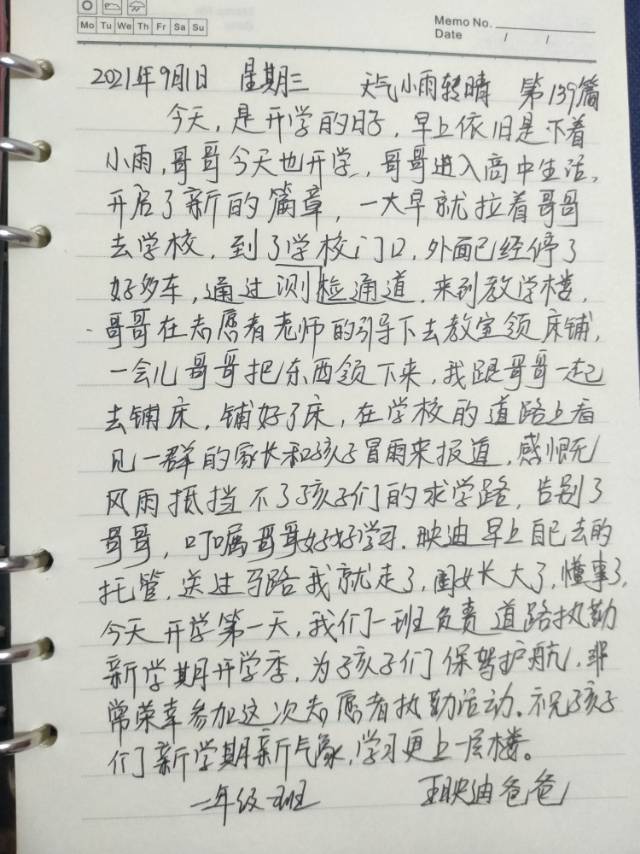 Mo Tu We Th Fr Sa Su
Memo No.
Date / /
2021年9月1日 星期三 天气小雨转晴 第139篇
今天,是开学的日子,早上依旧是下着
小雨,哥哥今天也开学,哥哥进入高中生活,
开启了新的篇章,一大早就拉着哥哥
去学校,到了学校门口,外面已经停了
好多车,通过测检通道,来到教学楼,
哥哥在志愿者老师的引导下去教室领床铺,
一会儿哥哥把东西领下来,我跟哥哥一起
去铺床,铺好了床,在学校的道路上看
见一群的家长和孩子冒雨来报道,感慨无
风雨抵挡不了孩子们的求学路,告别了
哥哥,叮嘱哥哥好好学习.映迪早上自己去的
托管,送过马路我就走了,闺女长大了,懂事了,
今天开学第一天,我们一班负责道路执勤
新学期开学季,为孩子们保驾护航,非
常荣幸参加这次志愿者执勤活动.祝孩子
们新学期新气象,学习更上一层楼。
二年级一班 王映迪爸爸